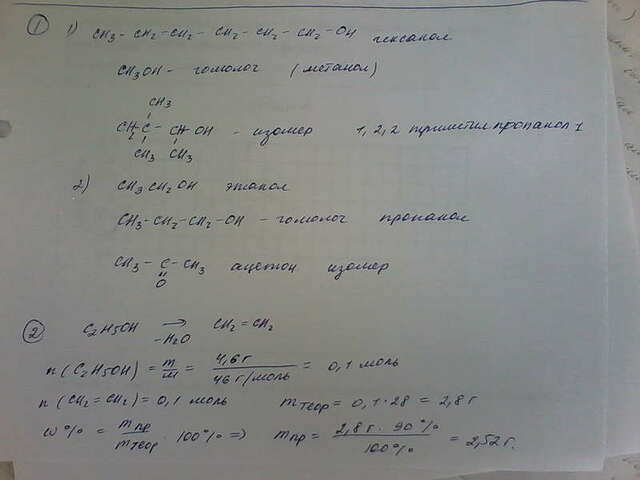 ① 1) CH3 - CH2 - CH2 - CH2 - CH2 - CH2 - OH гексанол
CH3OH - гомолог (метанол)
CH3
CH2 - C - CH - OH - изомер 1, 2, 2 триметил пропанол 1
CH3 CH3
2) CH3 CH2 OH этанол
CH3 - CH2 - CH2 - OH - гомолог пропанол
CH3 - C - CH3 ацетон изомер
O
② C2H5OH → CH2 = CH2
-H2O
n (C2H5OH) = m/M = 4,6 г / 46 г/моль = 0,1 моль
n (CH2 = CH2) = 0,1 моль mтеор = 0,1 · 28 = 2,8 г
ω % = mпр / mтеор · 100 % => mпр = 2,8 г · 90 % / 100 % = 2,52 г.